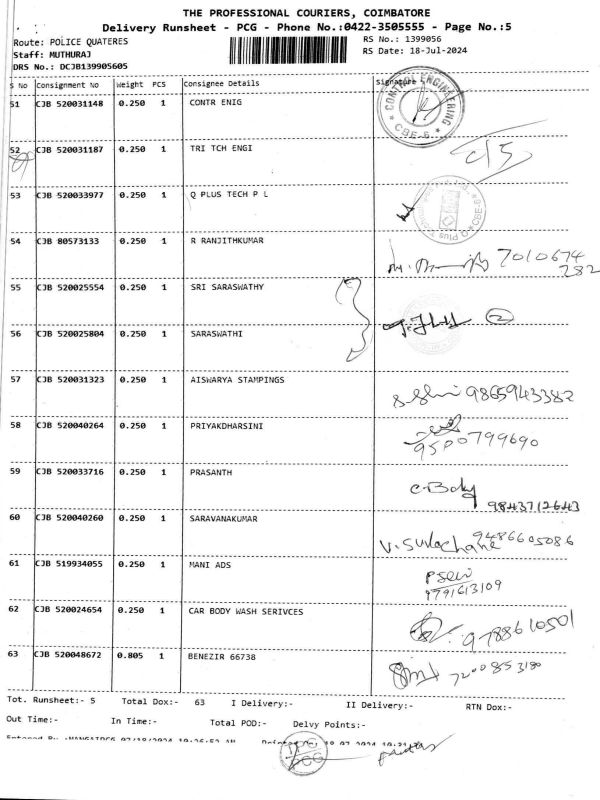 THE PROFESSIONAL COURIERS, COIMBATORE
Delivery Runsheet - PCG - Phone No.:0422-3505555 - Page No.:5
Route: POLICE QUATERES RS No.: 1399056
Staff: MUTHURAJ RS Date: 18-Jul-2024
DRS No.: DCJB139905605
S No Consignment No Weight PCS Consignee Details Signature
51 CJB 520031148 0.250 1 CONTR ENIG
CONTROL ENGINEERING CBE-6
52 CJB 520031187 0.250 1 TRI TCH ENGI
53 CJB 520033977 0.250 1 Q PLUS TECH P L
54 CJB 80573133 0.250 1 R RANJITHKUMAR
7010674
282
55 CJB 520025554 0.250 1 SRI SARASWATHY
2
56 CJB 520025804 0.250 1 SARASWATHI
57 CJB 520031323 0.250 1 AISWARYA STAMPINGS
9865943382
58 CJB 520040264 0.250 1 PRIYAKDHARSINI
9500799690
59 CJB 520033716 0.250 1 PRASANTH
9843712643
60 CJB 520040260 0.250 1 SARAVANAKUMAR
9486605086
61 CJB 519934055 0.250 1 MANI ADS
9791613109
62 CJB 520024654 0.250 1 CAR BODY WASH SERIVCES
9788610501
63 CJB 520048672 0.805 1 BENEZIR 66738
7200853180
Tot. Runsheet:- 5 Total Dox:- 63 I Delivery:- II Delivery:- RTN Dox:-
Out Time:- In Time:- Total POD:- Delvy Points:-